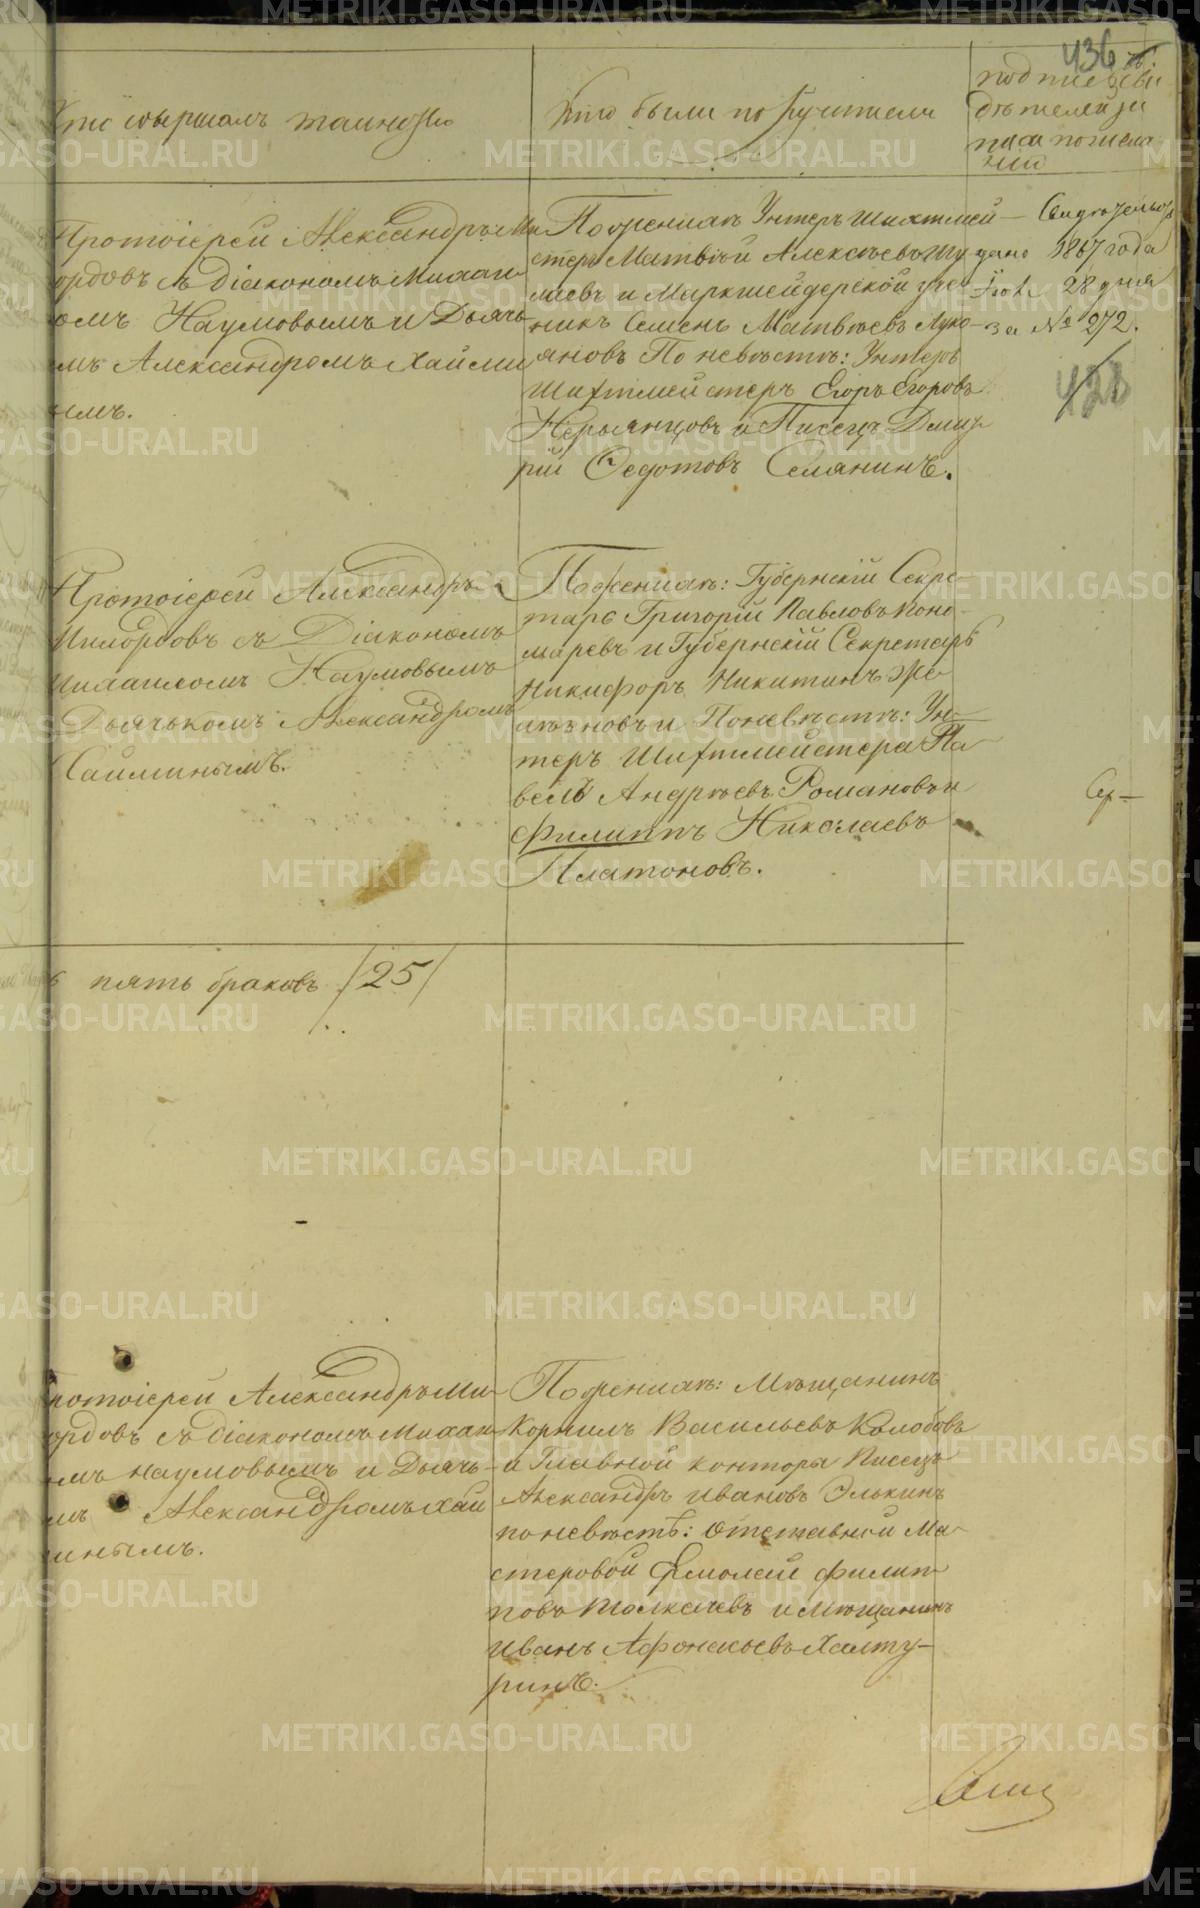 436
Кто совершалъ таинство
Кто были поручители
подпись сви
дѣтелей за
писи по жела
нію
Протоіерей Александръ Ми
ордовъ съ діакономъ Михаи
омъ Наумовымъ и Дьячь
мъ Александромъ Хайми
ымъ.
По женихѣ Унтеръ Шихтмей
стеръ Матвѣй Алексѣевъ Шу
лаевъ и Маркшейдерской уче
никъ Семенъ Матвѣевъ Луко
яновъ По невѣстѣ: Унтеръ
Шихтмейстеръ Егоръ Егоровъ
и Писецъ Дмит
рій Федотовъ Селянинъ.
дано 1867 года
28 дня
за № 272.
423
Протоіерей Александръ
Милордовъ съ Діакономъ
Михаиломъ Наумовымъ
Дьячькомъ Александромъ
Хайминымъ.
По женихѣ: Губернскій Секре
тарь Григорій Павловъ Поно
маревъ и Губернскій Секретарь
Никифоръ Никитинъ Же
лѣзновъ и По невѣстѣ: Ун
теръ Шихтмейстера Па
велъ Андреевъ Романовъ и
Филиппъ Николаевъ
Платоновъ.
ь пять браковъ /25/
ротоіерей Александръ Ми
ордовъ съ діакономъ Михаи
мъ Наумовымъ и Дьячь
мъ Александромъ Хай
инымъ.
По женихѣ: Мѣщанинъ
Корнилъ Васильевъ Колобовъ
и Главной конторы Писецъ
Александръ Ивановъ Элькинъ
по невѣстѣ: отставной Ма
стеровой Ермолай Филип
повъ Толкачевъ и Мѣщанинъ
Иванъ Афонасьевъ Халту
ринъ.
METRIKI.GASO-URAL.RU